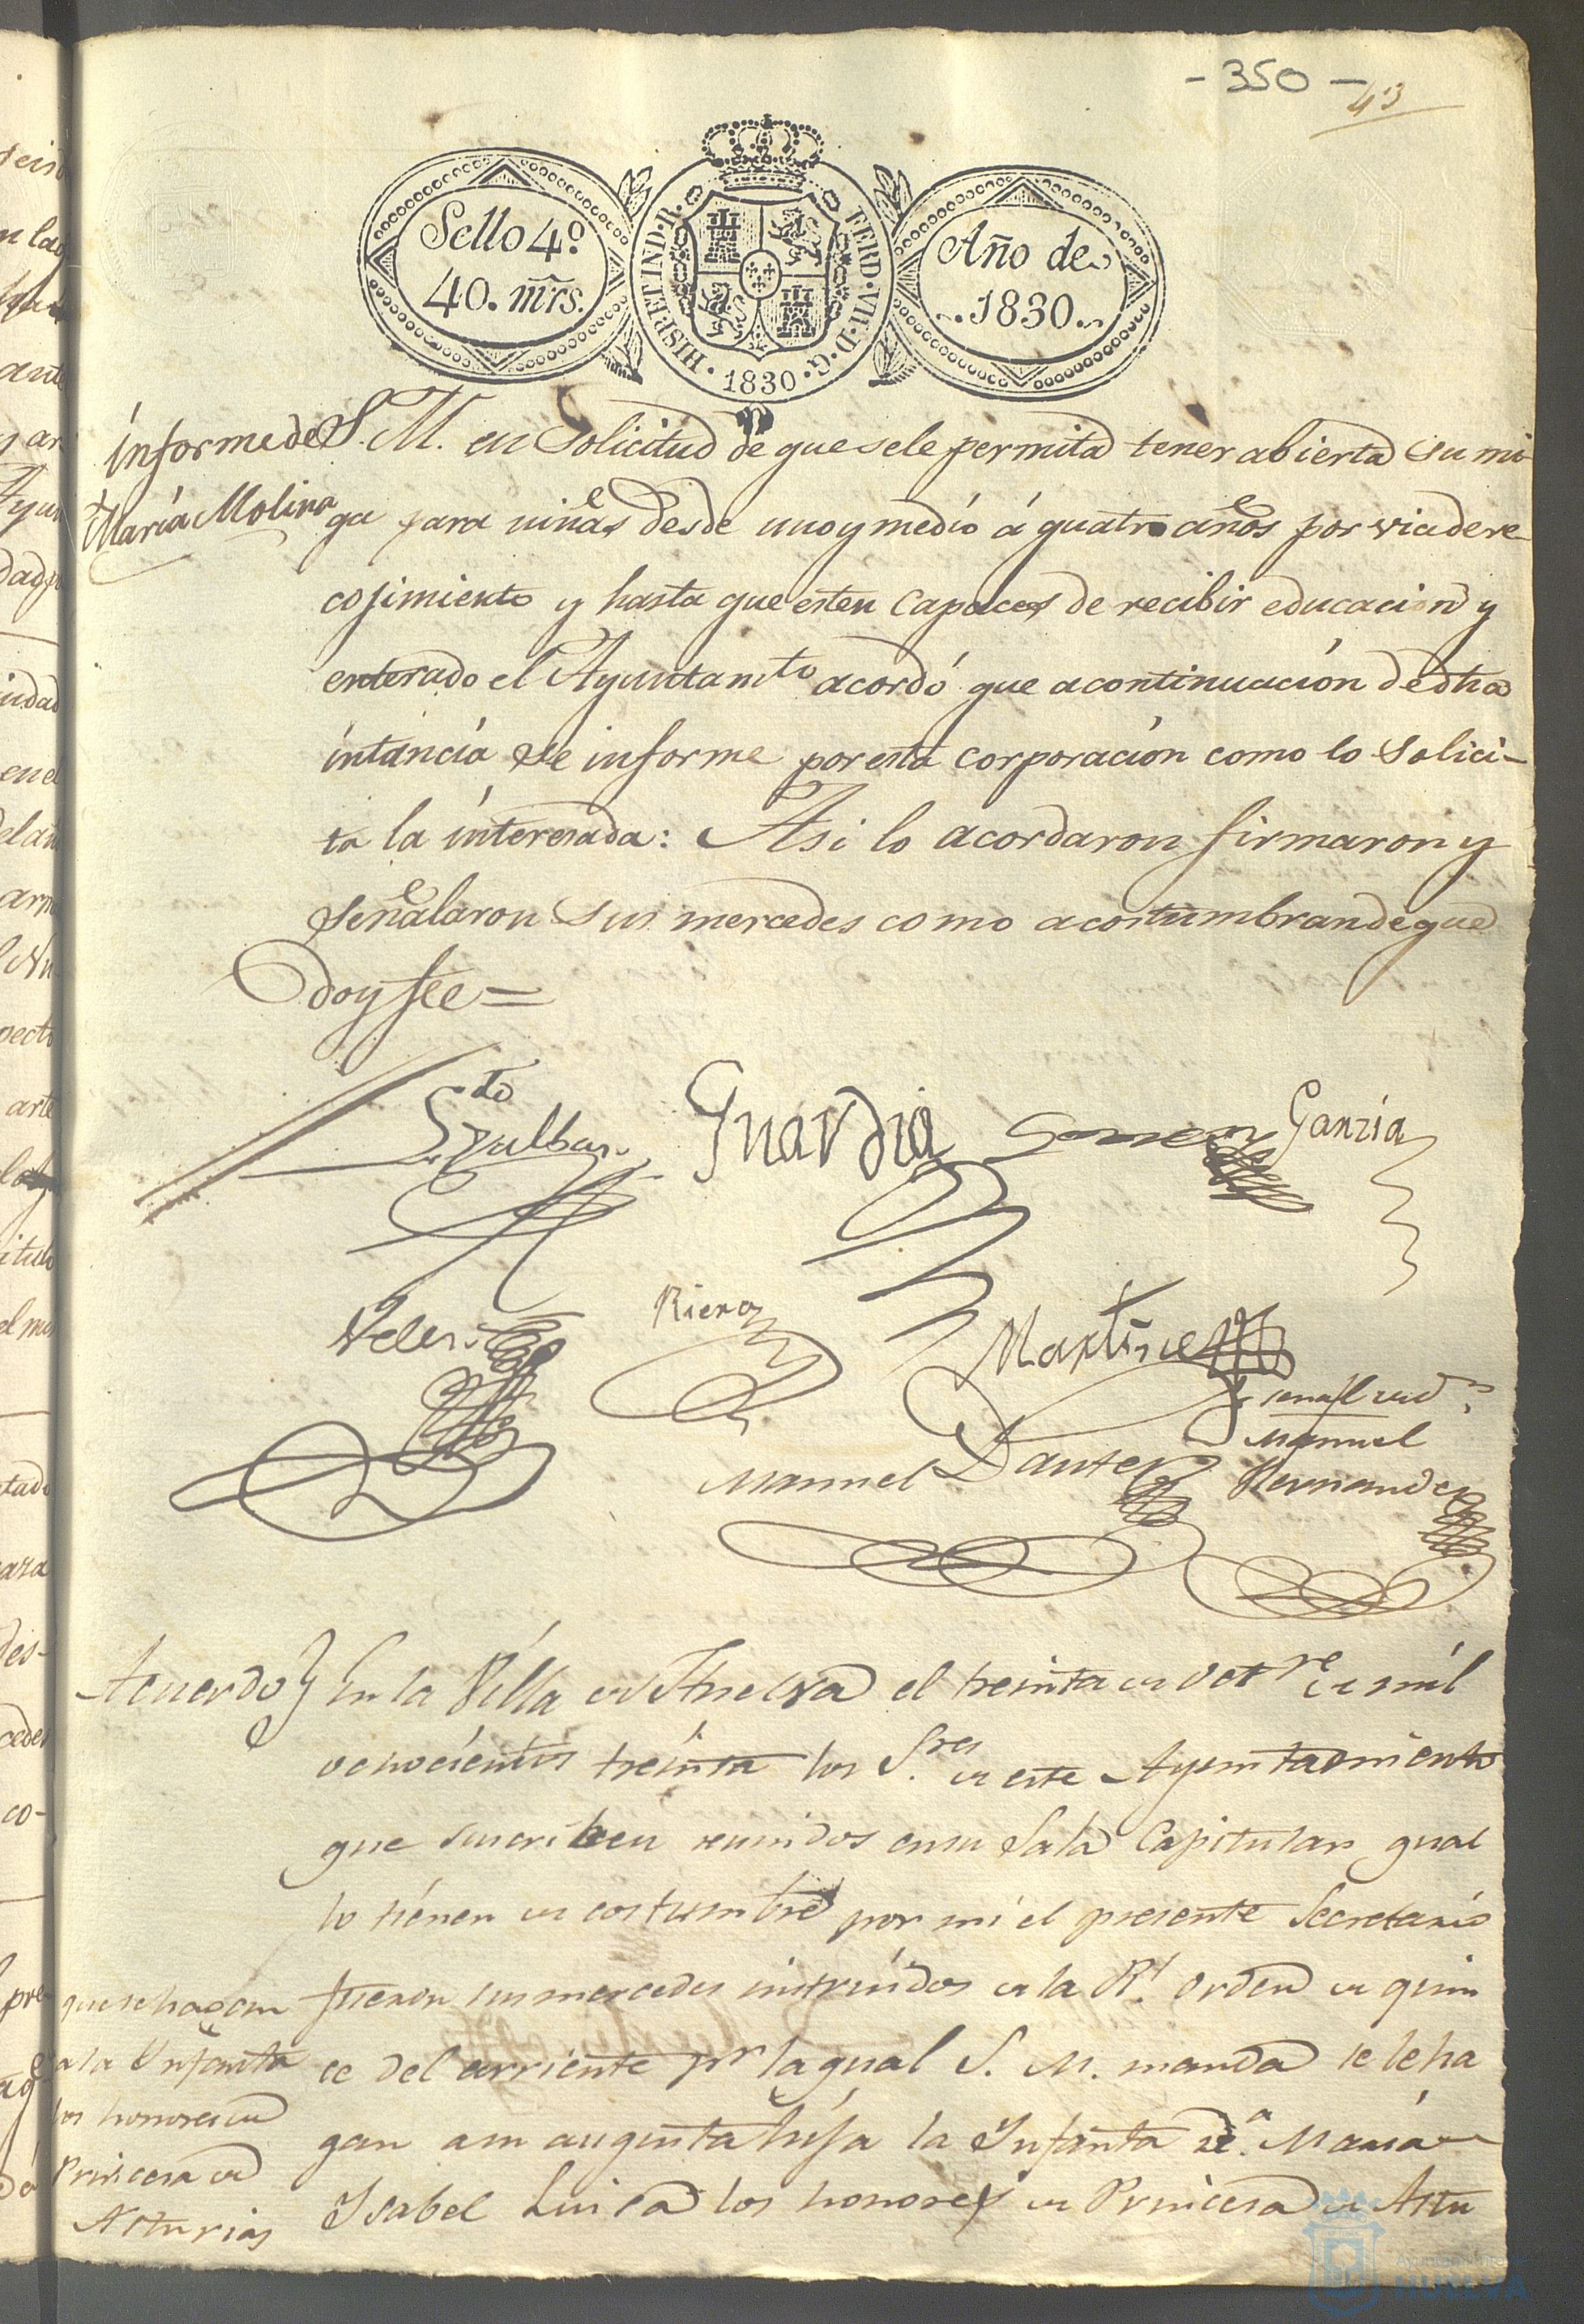 - 350 -
43
Sello 4º.
40. mrs.
HISPET IND. R. FERD. VII. D. G.
· 1830 ·
Año de
1830.
informe de
María Molina
S. M. en Solicitud de que sele permita tener abierta su mi-
ga para niñas desde uno y medio á quatro años por via de re-
cojimiento y hasta que esten Capaces de recibir educacion y
enterado el Ayuntamto acordó que acontinuacion dedha
intancia se informe por esta corporacion como lo solici-
ta la interesada: Asi lo acordaron firmaron y
señalaron sus mercedes como acostumbran de que
doy fee =
Guardia
Garzia
Velez
Riera
Martinez
Manuel Dantes
Manuel
Hernandez
Acuerdo} En la Villa de Huelva el treinta de Octre de mil
ochocientos treinta los Sres. de este Ayuntamiento
que suscriben reunidos en su Sala Capitular qual
lo tienen de costumbre por mi el presente Secretario
fueron sus mercedes instruidos de la Rl. orden de quin
ce del corriente pr la qual S. M. manda se le ha
gan a su augusta hija la Infanta Da. Maria
Isabel Luisa los honores de Princesa de Astu
que se hagan
a la Infanta
los honores de
Princesa de
Asturias
Ayuntamiento
HUELVA